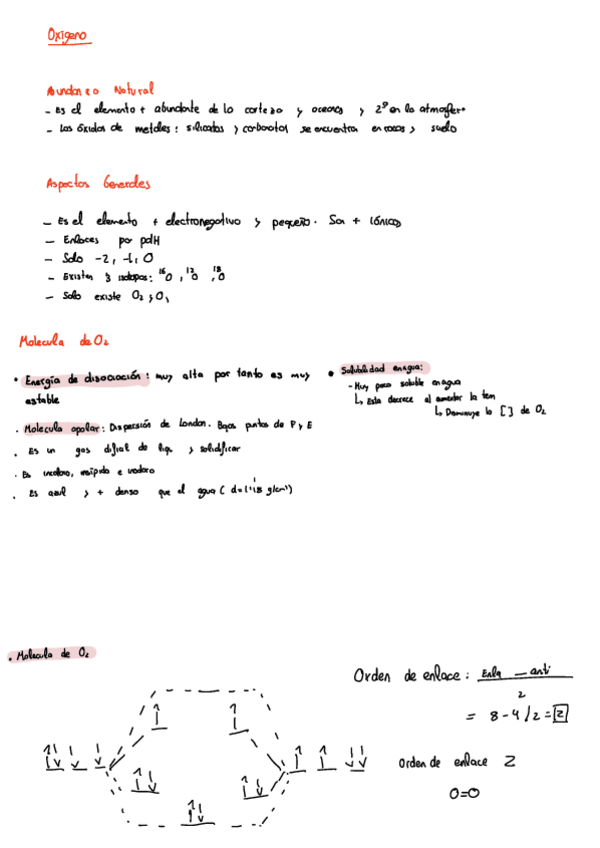 Oxígeno
Abundancia Natural
- Es el elemento + abundante de la corteza y oceanos y 2º en la atmosfera
- Los óxidos de metales: silicatos y carbonatos se encuentran en rocas y suelo
Aspectos Generales
- Es el elemento + electronegativo y pequeño. Son + iónicos
- Enlaces por pdH
- Solo -2, -1, 0
- Existen 3 isotopos: ¹⁶O, ¹⁷O, ¹⁸O
- Solo existe O₂ y O₃
Molecula de O₂
• Energía de disociación: muy alta por tanto es muy
estable
• Molecula apolar: Dispersión de London. Bajos puntos de P y E
• Es un gas dificil de liq. y solidificar
• Es incoloro, insípido e inodoro
• Es azul y + denso que el agua (d=1'118 g/cm³)
• Solubilidad en agua:
- Muy poco soluble en agua
↳ Esta decrece al aumentar la tem
↳ Disminuye la [ ] de O₂
• Molecula de O₂
Orden de enlace: Enla - anti
2
= 8-4/2=2
Orden de enlace 2
O=O